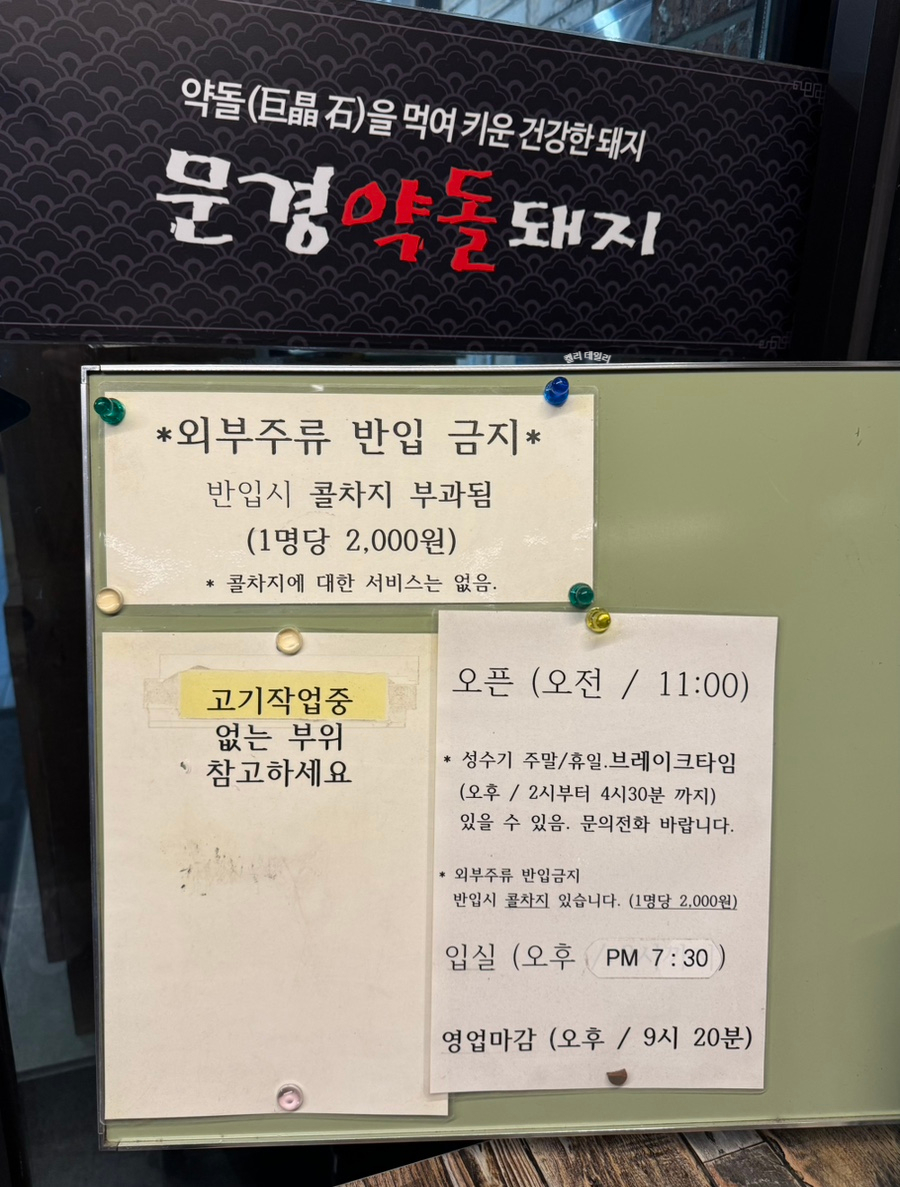 약돌(巨晶 石)을 먹여 키운 건강한 돼지
문경약돌돼지
켈리 데일리
*외부주류 반입 금지*
반입시 콜차지 부과됨
(1명당 2,000원)
* 콜차지에 대한 서비스는 없음.
고기작업중
없는 부위
참고하세요
오픈 (오전 / 11:00)
* 성수기 주말/휴일.브레이크타임
(오후 / 2시부터 4시30분 까지)
있을 수 있음. 문의전화 바랍니다.
* 외부주류 반입금지
반입시 콜차지 있습니다. (1명당 2,000원)
입실 (오후 PM 7:30)
영업마감 (오후 / 9시 20분)